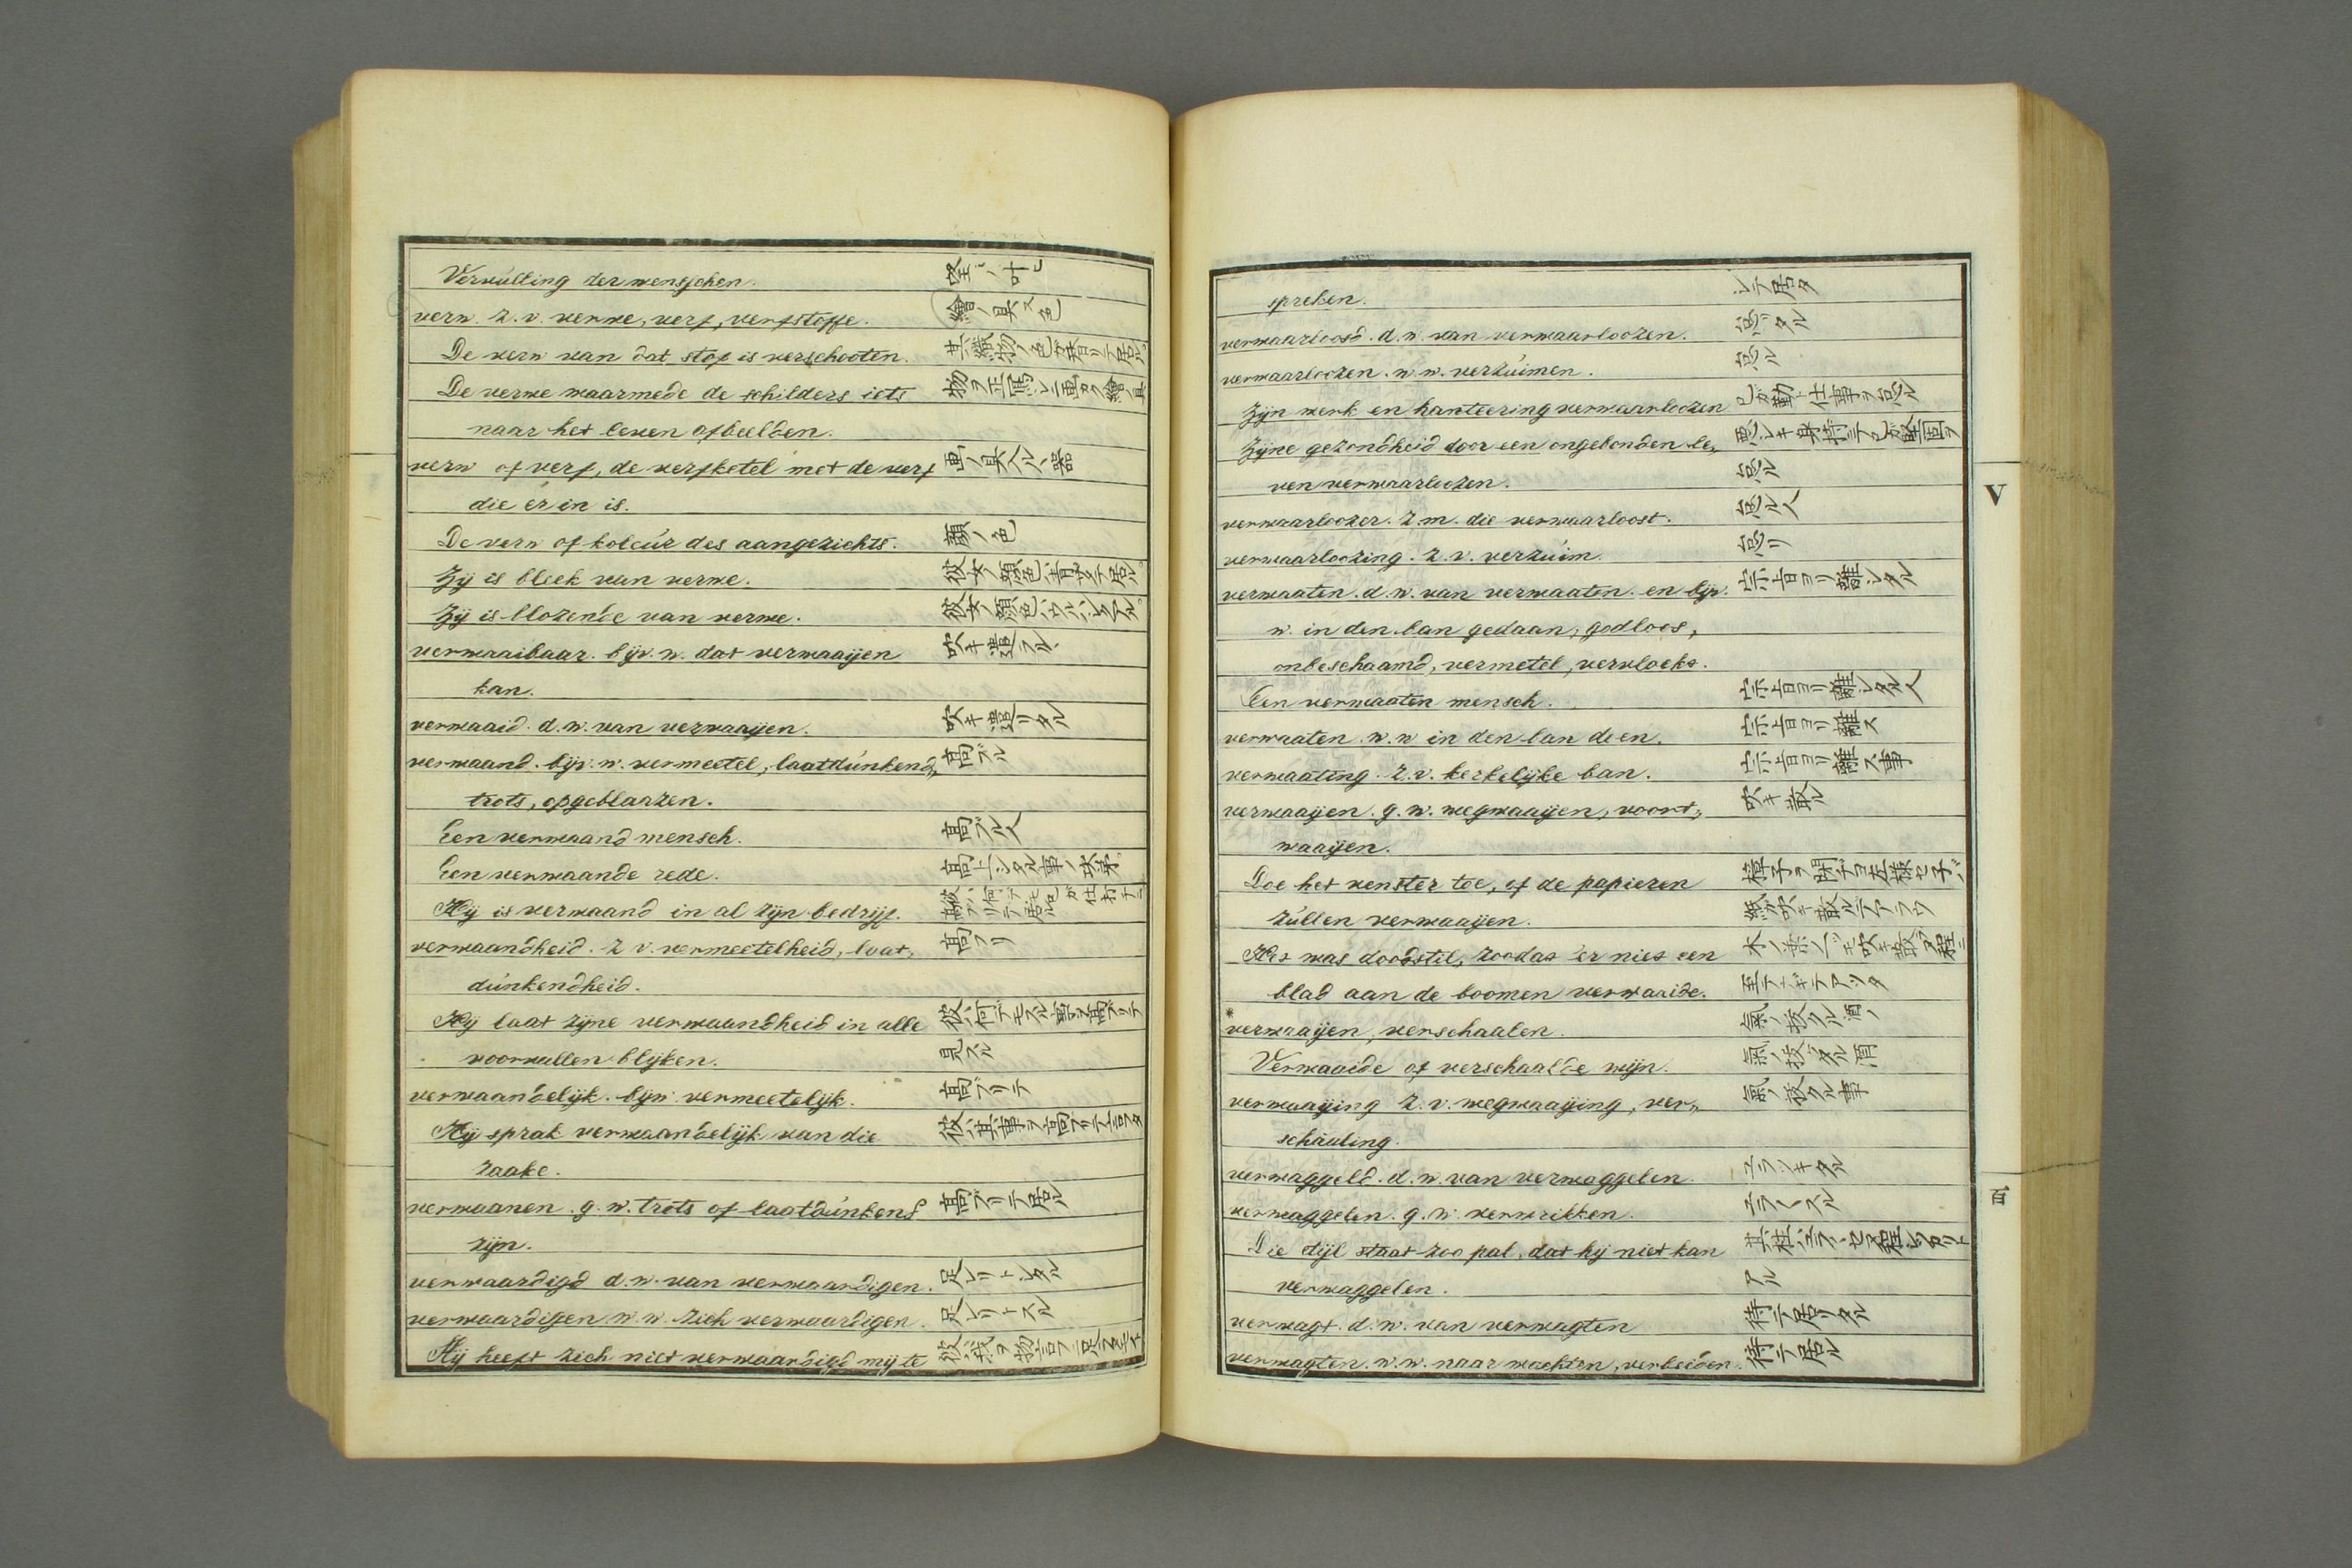 Vervulling der menschen. 望ノ叶
verw. z. v. verwe, verf, verfstoffe. 繪ノ具又色
De verw van dat stof is verschooten. 其織物ノ色ガ替リテ居ル
De verwe waarmede de schilders iets 物ヲ正馬シ画ク繪具
naar het leven afbeelden.
verw of verf, de verfketel met de verf 画ノ具入ル器
die ér in is.
De verw of koleúr des aangezichts. 顔ノ色
Zij is bleek van verwe. 彼女ノ顔色ハ青ザメテ居ル
Zij is blozende van verwe. 彼女ノ顔色ハ
verwaaibaar. bijv. w. dat verwaaijen 吹キ遣ラル
kan.
verwaaid. d. w. van verwaaijen. 吹キ遣リタル
verwaand. bijv. w. vermeetel, laatdúnkend, 高ブル
trots, opgeblaazen.
Een verwaand mensch. 高ブル人
Een verwaande rede. 高上シタル事ノ
Hij is verwaand in al zijn bedrijf. 彼ハ何デモ己ガ仕打ニ高ブリテ居ル
verwaandheid. z. v. vermeetelheid, laat, 高ブリ
dúnkendheid.
Hij laat zijne verwaandheid in alle 彼ハ何デモスル事ヲ高ブリテ
voorvallen blijken. 見スル
verwaandelijk. bijw. vermeetelijk. 高ブリテ
Hij sprak verwaandelijk van die 彼ハ其事ヲ高ブリテ言フタ
zaake.
verwaanen. g. w. trots of laatdúnkend 高ブリテ居ル
zijn.
verwaardigd d. w. van verwaardigen. 足レリトシタル
verwaardigen w. w. zich verwaardigen. 足レリトスル
Hij heeft zich niet verwaardigd mij te 彼ハ我ヲ物言フニ足ラズト
spreken. シテ居タ
verwaarloosd. d. w. van verwaarloozen. 怠リタル
verwaarloozen. w. w. verzúimen. 怠ル
Zijn werk en hanteering verwaarloozen 己ガ勤ト仕事ヲ怠ル
Zijne gezondheid door een ongebonden le, 悪シキ身持ニテ己ガ堅固ヲ
ven verwaarloozen. 怠ル
verwaarloozer. z. m. die verwaarloost. 怠ル人
verwaarloozing. z. v. verzúim. 怠リ
verwaaten. d. w. van verwaaten. en bijv. 宗旨ヨリ離シタル
w. in den ban gedaan, godloos,
onbeschaamd, vermetel, vervloekt.
Een verwaaten mensch. 宗旨ヨリ離シタル人
verwaaten. w. w in den ban doen. 宗旨ヨリ離ス
verwaating. z. v. kerkelijke ban. 宗旨ヨリ離ス事
verwaaijen. g. w. wegwaaijen, voort, 吹キ散ル
waaijen.
Doe het venster toe, of de papieren 障子ヲ閉デヨ左様セネバ
zúllen verwaaijen. 紙ガ吹キ散ルデアラウ
Het was doodstil, zoodat ér niet een 木ノ葉一ツモ吹キ散ラヌ程ニ
blad aan de boomen verwaaide. 至テナギテアツタ
*verwaaijen, verschaalen. 氣ノ抜クル酒ノ
Verwaaide of verschaalde wijn. 氣ノ抜ケタル酒
verwaaijing z. v. wegwaaijing, ver, 氣ノ抜クル事
schaaling.
verwaggeld. d. w. van verwaggelen. ユラツキタル
verwaggelen. g. w. verwrikken. ユラ〱スル
Die stijl staat zoo pal, dat hij niet kan 其柱ハユラ〱セヌ程シツカリト
verwaggelen. アル
verwagt. d. w. van verwagten 待テ居リタル
verwagten. w. w. naar wachten, verbeiden. 待テ居ル
V
百